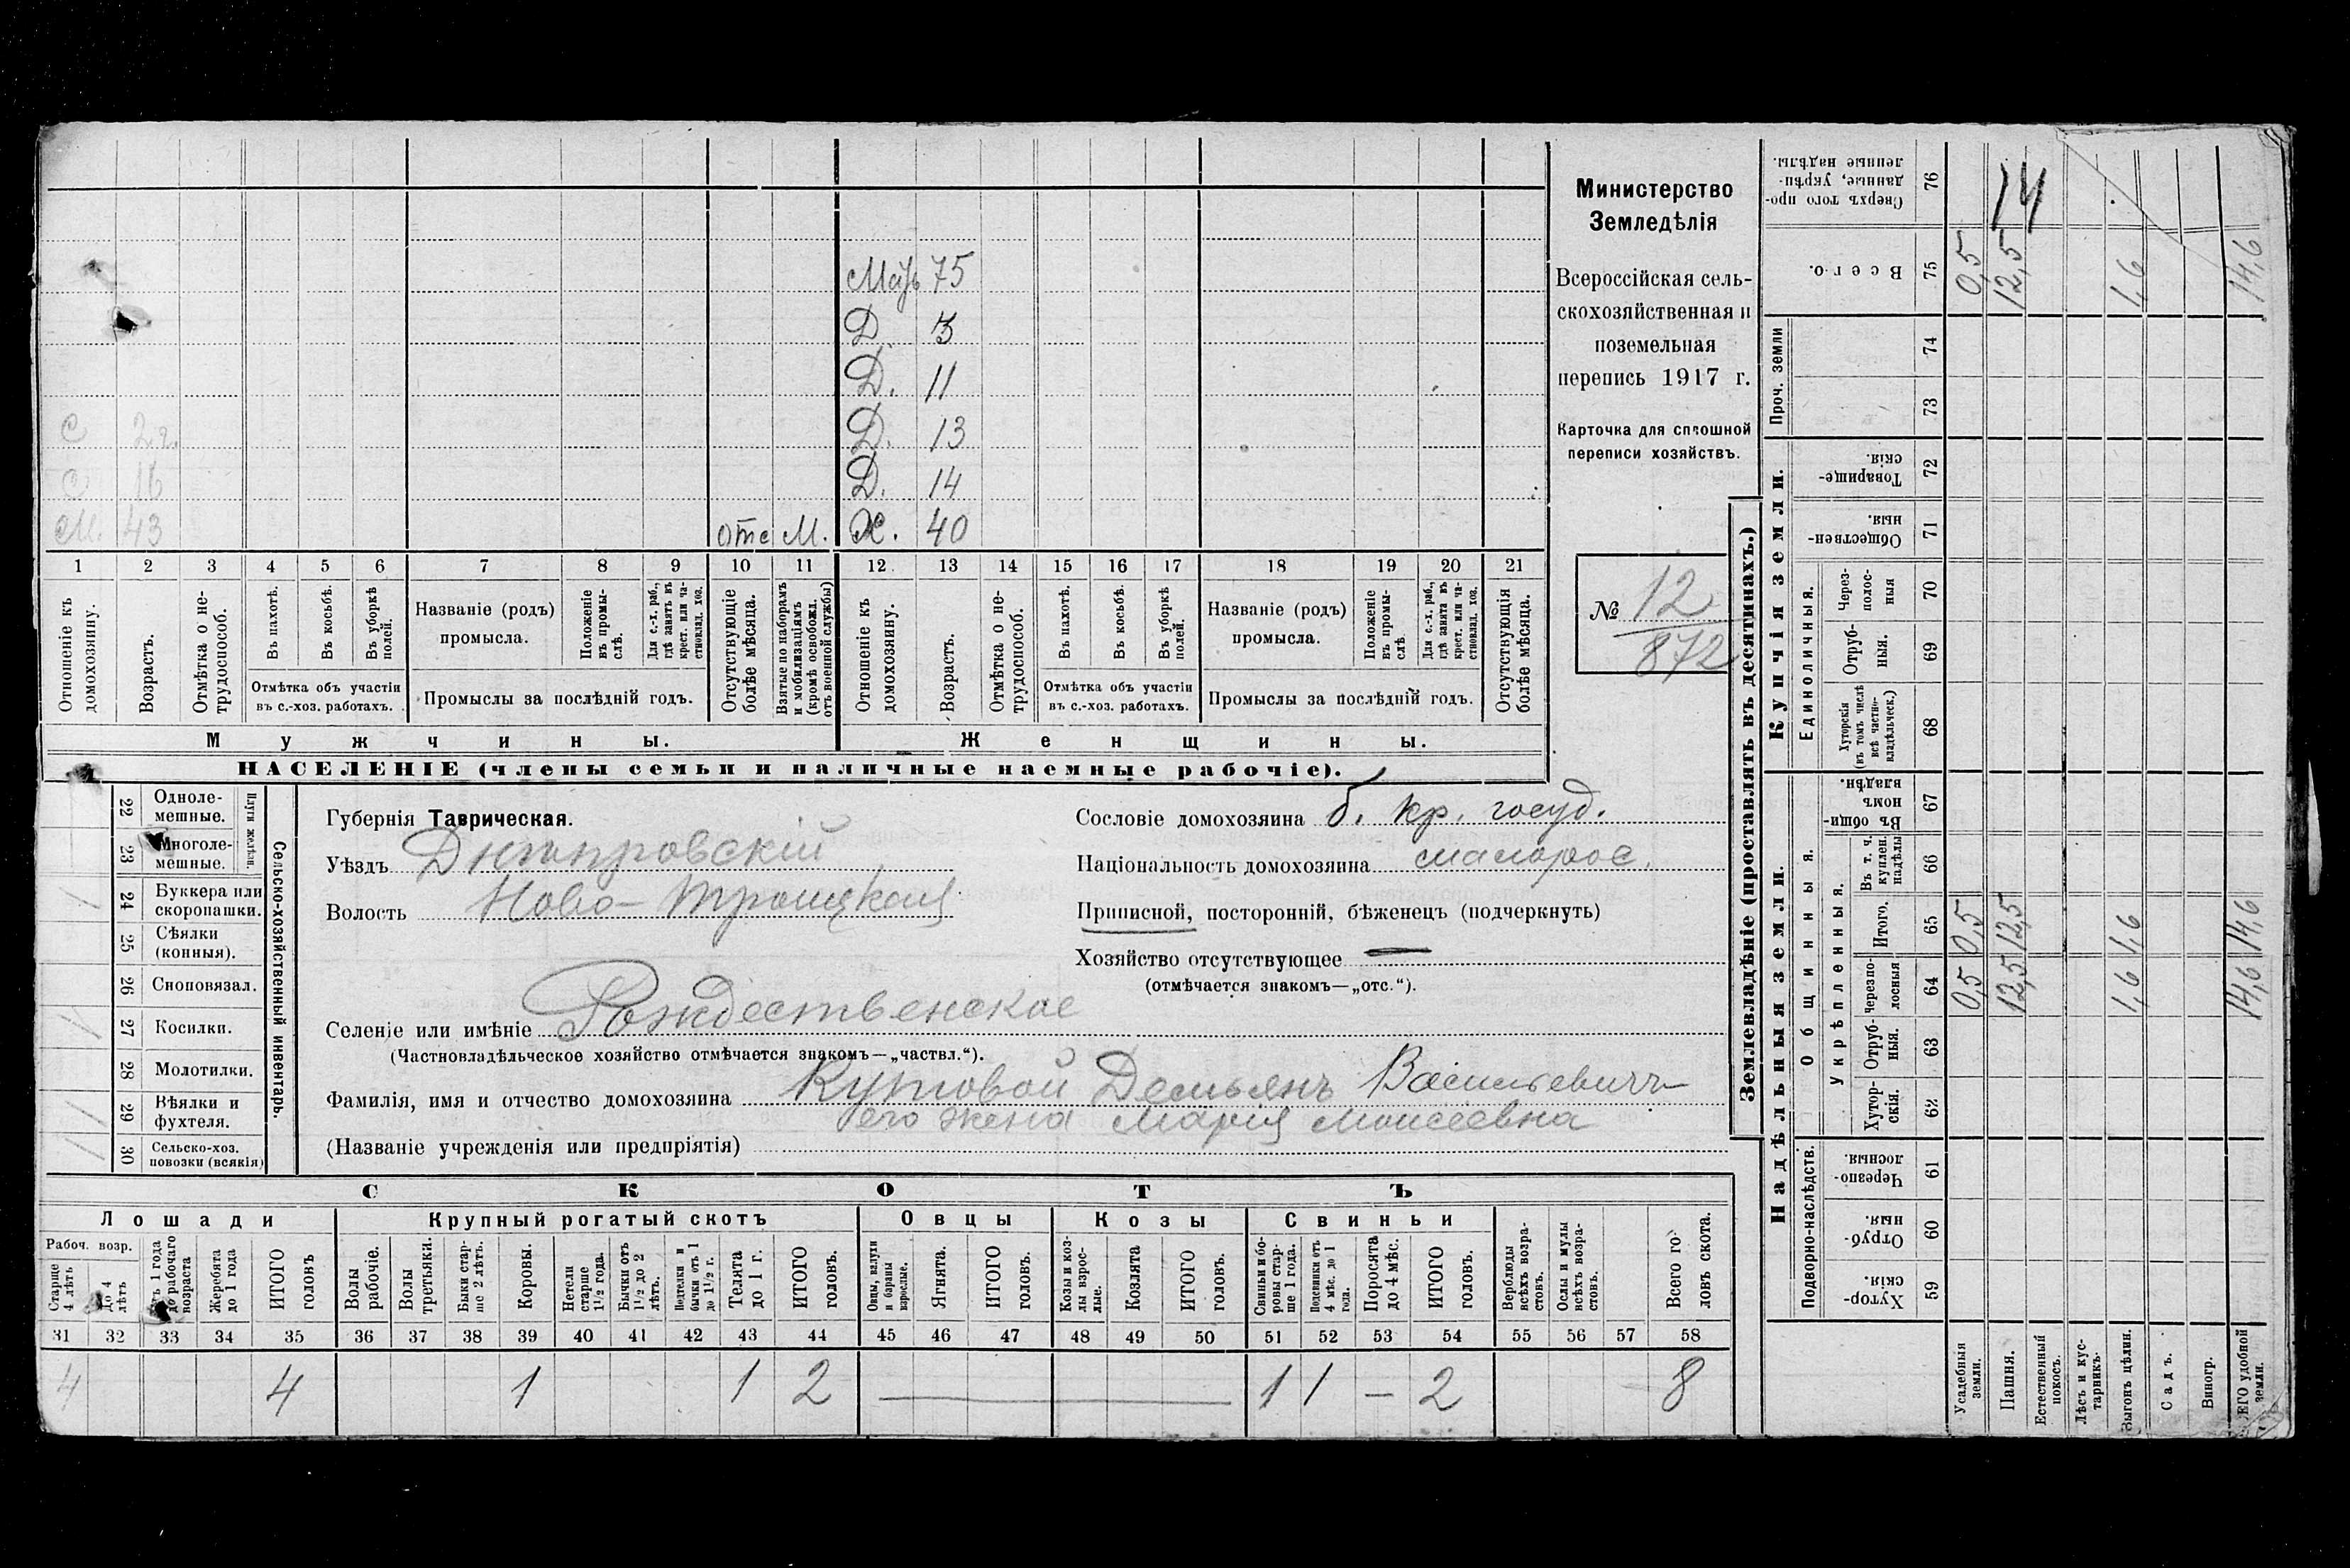 Мать 75
Д. 3
Д. 11
С 2 г. Д. 13
С 16 Д. 14
М. 43 отс М. Ж. 40
1 2 3 4 5 6 7 8 9 10 11 12 13 14 15 16 17 18 19 20 21
Отношеніе къ домохозяину.
Возрастъ.
Отмѣтка о не-
трудоспособ.
Въ пахотѣ.
Въ косьбѣ.
Въ уборкѣ полей.
Отмѣтка объ участіи
въ с.-хоз. работахъ.
Названіе (родъ)
промысла.
Положеніе
въ промы-
слѣ.
Для с.-х. раб.,
гдѣ занятъ въ
крест. или ча-
стновлад. хоз.
Промыслы за послѣдній годъ.
Отсутствующіе
болѣе мѣсяца.
Взятые по наборамъ
и мобилизаціямъ
(кромѣ освобожд.
отъ военной службы)
Отношеніе къ
домохозяину.
Возрастъ.
Отмѣтка о не-
трудоспособ.
Въ пахотѣ.
Въ косьбѣ.
Въ уборкѣ
полей.
Отмѣтка объ участіи
въ с.-хоз. работахъ.
Названіе (родъ)
промысла.
Положеніе
въ промы-
слѣ
Для с.-х. раб.,
гдѣ занята въ
крест. или ча-
стновлад. хоз.
Промыслы за послѣдній годъ.
Отсутствующія
болѣе мѣсяца.
Мужчины.
Женщины.
НАСЕЛЕНІЕ (члены семьи и наличные наемные рабочіе).
Министерство
Земледѣлія
Всероссійская сель-
скохозяйственная и
поземельная
перепись 1917 г.
Карточка для сплошной
переписи хозяйствъ.
№ 12
872
22 Одноле-
мешные.
23 Многоле-
мешные.
Плуги желѣзн.
1 24 Буккера или
скоропашки.
25 Сѣялки
(конныя).
26 Сноповязал.
1 27 Косилки.
28 Молотилки.
1 29 Вѣялки и
фухтеля.
1 30 Сельско-хоз.
повозки (всякія)
Сельско-хозяйственный инвентарь.
Губернія Таврическая.
Уѣздъ Днѣпровскій
Волость Ново-Троицкая
Сословіе домохозяина б. кр. госуд.
Національность домохозяина малорос.
Приписной, посторонній, бѣженецъ (подчеркнуть)
Хозяйство отсутствующее —
(отмѣчается знакомъ—„отс.“).
Селеніе или имѣніе Рождественское
(Частновладѣльческое хозяйство отмѣчается знакомъ—„частвл.“).
Фамилія, имя и отчество домохозяина Кутовой Демьянъ Васильевичъ
его жена Мария Моисеевна
(Названіе учрежденія или предпріятія)
СКОТЪ
Лошади
Крупный рогатый скотъ
Овцы
Козы
Свиньи
Рабоч. возр.
Старше
4 лѣтъ
До 4
лѣтъ
Отъ 1 года
до рабочаго
возраста
Жеребята
до 1 года
ИТОГО
головъ
Волы
рабочіе.
Волы
третьяки.
Быки стар-
ше 2 лѣтъ.
Коровы.
Нетели
старше
1½ года.
Бычки отъ
1½ до 2
лѣтъ.
Подтелки и
бычки отъ 1
до 1½ г.
Телята
до 1 г.
ИТОГО
головъ.
Овцы, валухи
и бараны
взрослые.
Ягнята.
ИТОГО
головъ.
Козы и коз-
лы взрос-
лые.
Козлята
ИТОГО
головъ.
Свиньи и бо-
ровы стар-
ше 1 года.
Подсвинки отъ
4 мѣс. до 1
года.
Поросята
до 4 мѣс.
ИТОГО
головъ.
Верблюды
всѣхъ возра-
стовъ.
Ослы и мулы
всѣхъ возра-
стовъ.
Всего го-
ловъ скота.
31 32 33 34 35 36 37 38 39 40 41 42 43 44 45 46 47 48 49 50 51 52 53 54 55 56 57 58
4 4 1 1 2 — 1 1 — 2 8
Землевладѣніе (проставлять въ десятинахъ.)
Надѣльныя земли.
Купчія земли.
Проч. земли
Подворно-наслѣдств.
Общинныя.
Укрѣпленныя.
Единоличныя.
Сверхъ того про-
данные, укрѣп-
ленные надѣлы.
76 14
Всего.
75 0,5 12,5 1,6 14,6
74
73
Товарище-
скія.
72
Обществен-
ныя.
71
Через-
полос-
ныя
70
Отруб-
ныя.
69
Хуторскія
(въ томъ числѣ
всѣ частно-
владѣльческ.)
68
Въ общин-
номъ
владѣн.
67
Въ т. ч.
куплен.
надѣлы
66
Итого.
65 0,5 12,5 1,6 14,6
Черезпо-
лосныя
64 0,5 12,5 1,6 14,6
Отруб-
ныя.
63
Хутор-
скія.
62
Черезпо-
лосныя.
61
Отруб-
ныя.
60
Хутор-
скія.
59
Усадебныя
земли.
Пашня.
Естественный
покосъ.
Лѣсъ и кус-
тарникъ.
Выгонъ цѣлин.
Садъ.
Виногр.
ВСЕГО удобной
земли.